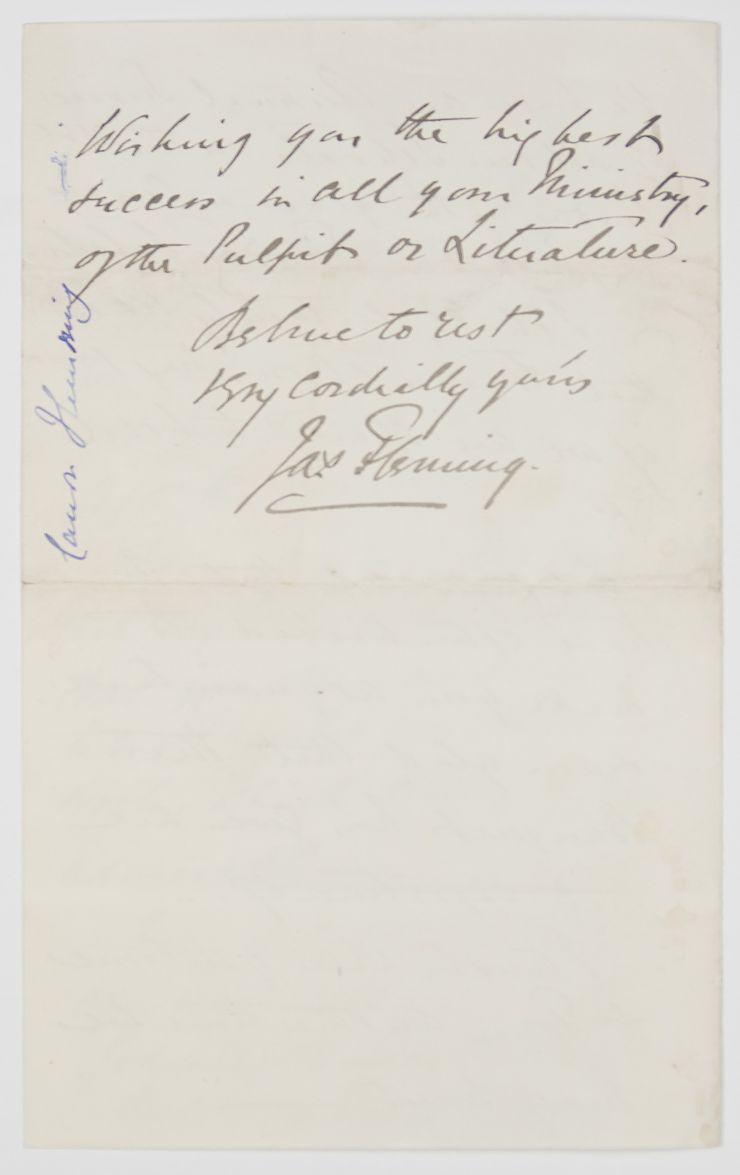 Wishing you the highest
success in all your Ministry,
of the Pulpit or Literature.
Believe to rest
Very Cordially yours
Jas Fleming.
Canon Flemming